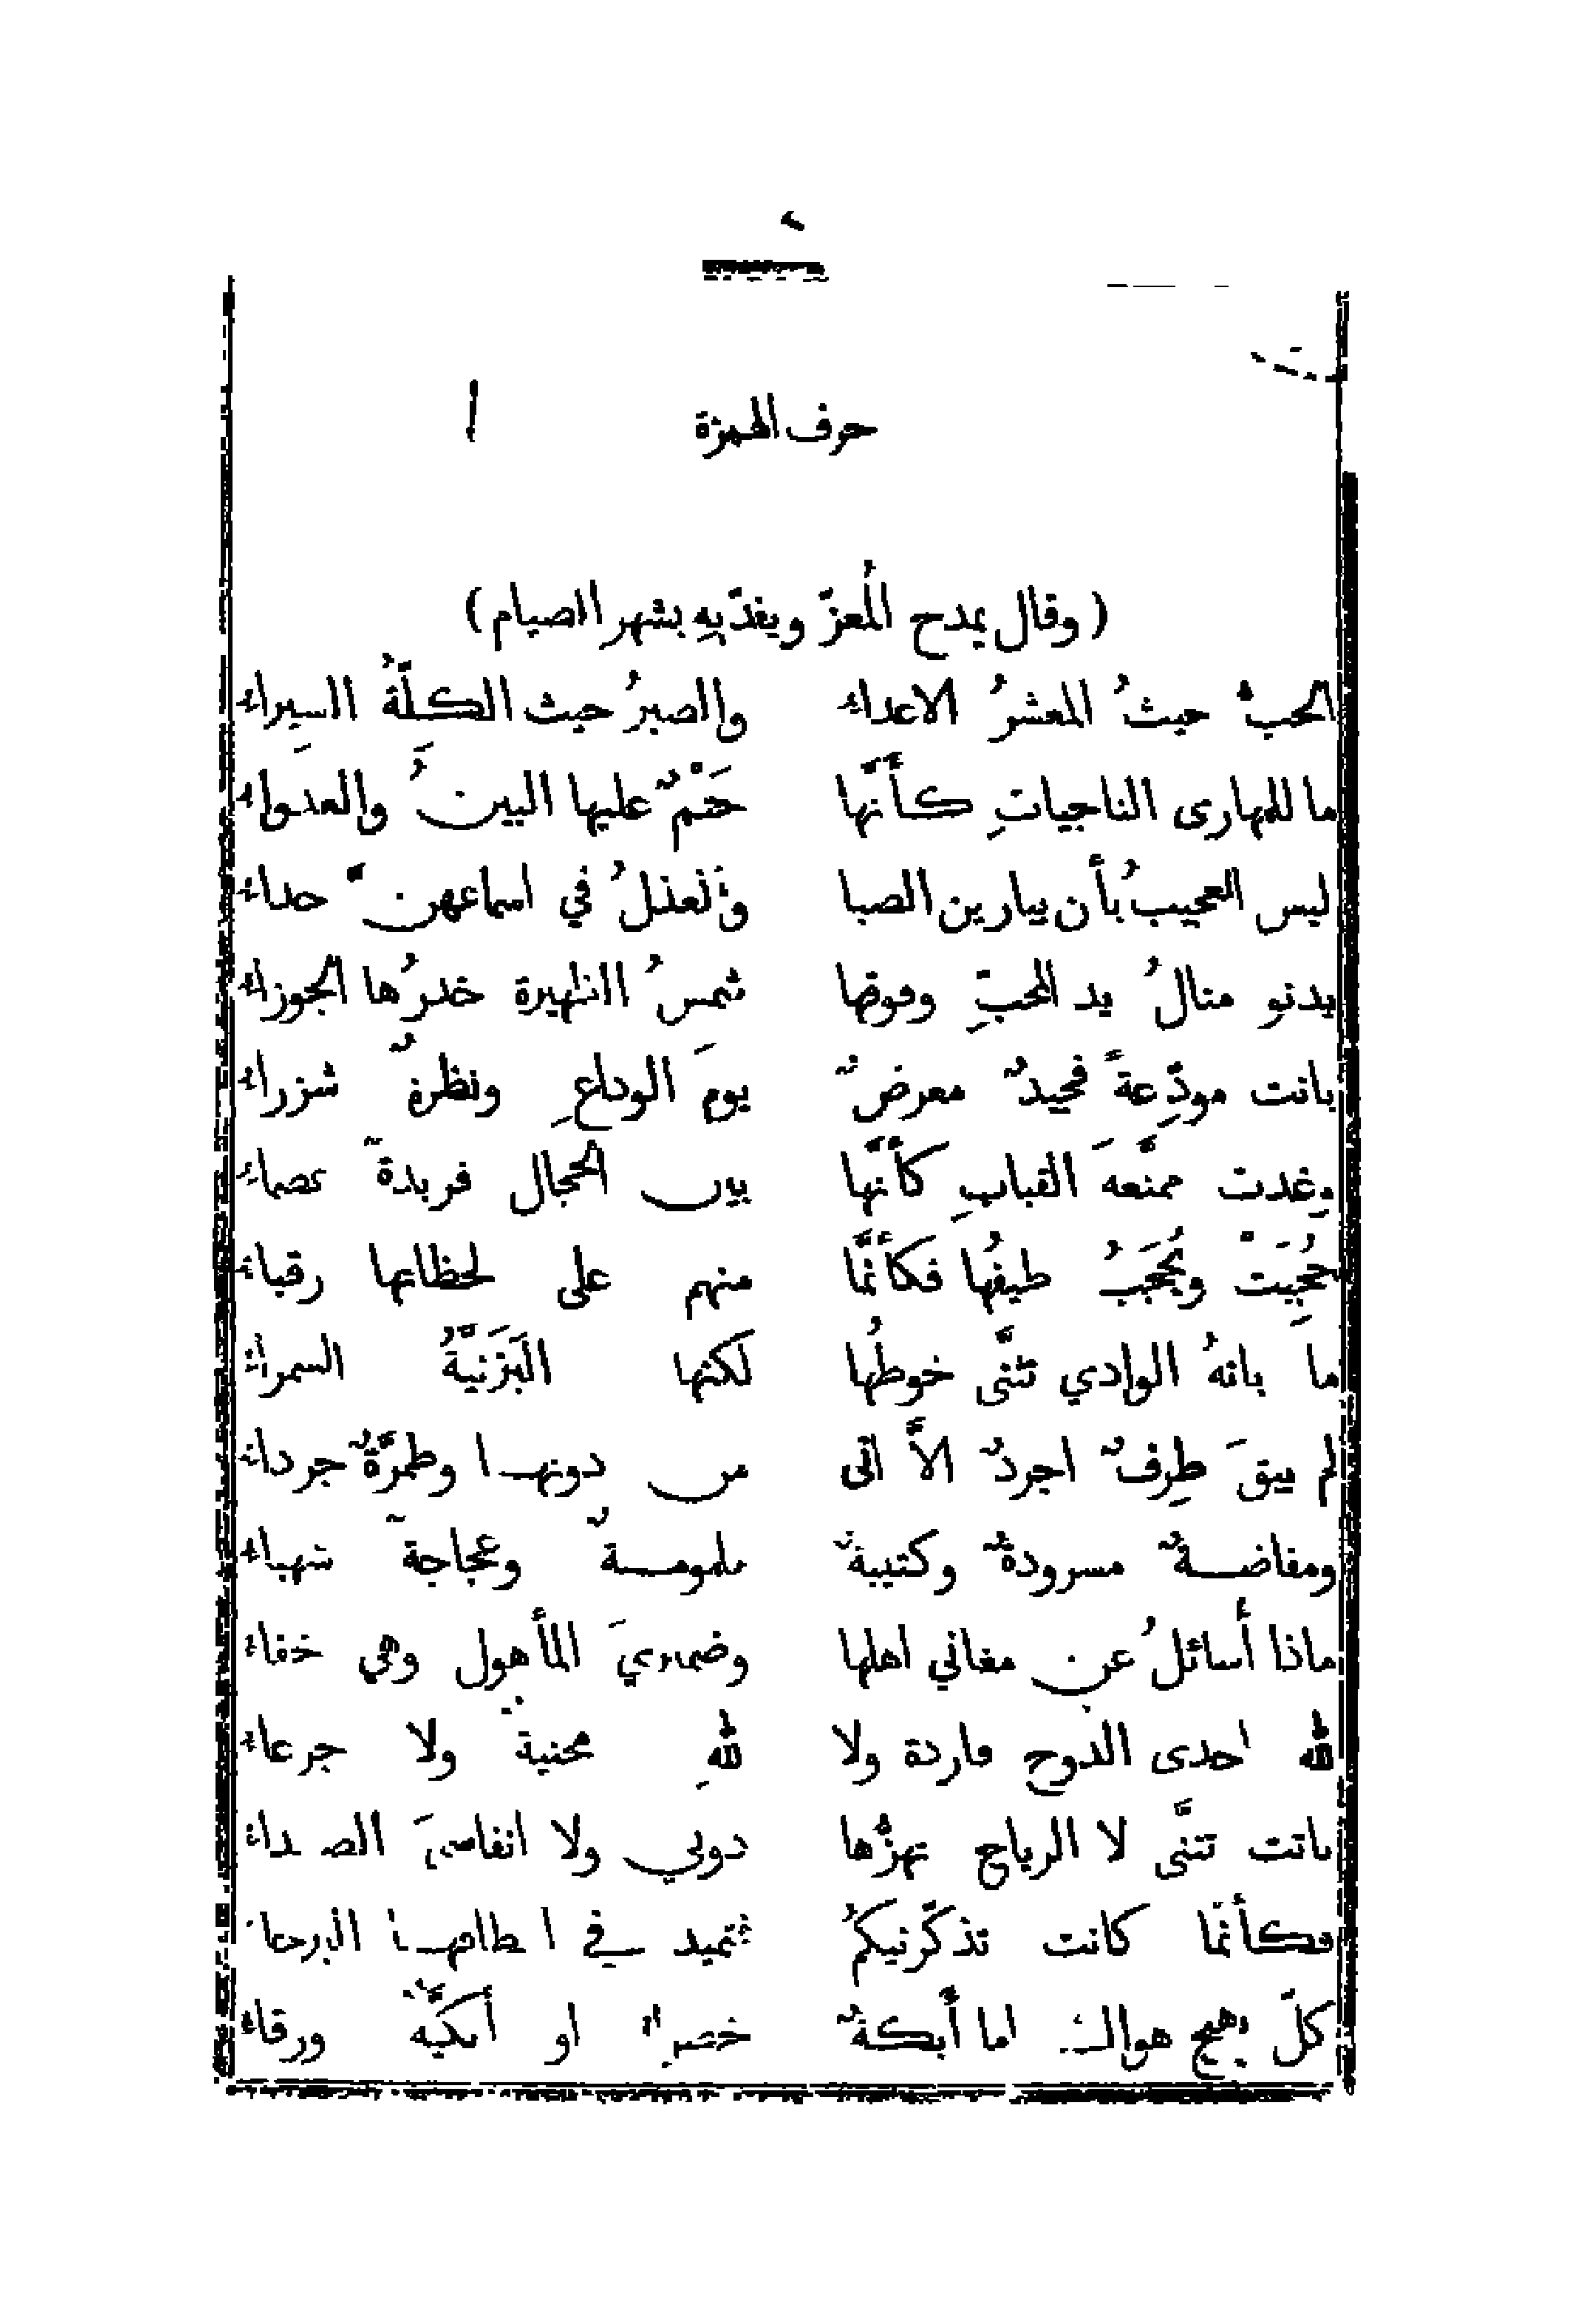 حرف الهمزة
( وقال يمدح المُعزّ ويفدّيهِ بشهر الصيام )
الحبُّ حيثُ المعشرُ الاعداء والصبرُ حيث الكلَّةُ السِيَراء
ما للمهارى الناجياتِ كأَنَّها حَتْمٌ عليها البينُ والعدواء
ليس العجيبُ بأَن يبارين الصبا والعذلُ في اسماعهنّ حداء
يدنو منالُ يد المحبِّ وفوقها شمسُ الظهيرة خدرُها الجوزاء
بانت مودِّعةً فجيدٌ معرضٌ يومَ الوداعِ ونظرةٌ شزراء
وغدت ممنَّعةَ القبابِ كأَنَّها بين الحجال فريدةٌ عصماء
حُجِبَتْ ويُحجَبُ طيفُها فكأَنَّما منهم على لحظاتها رقباء
ما بانةُ الوادي تثنَّى خوطُها لكنها اليَزَنيَّةُ السمراء
لم يبقَ طِرفٌ اجردٌ الاَّ اتى من دونها وطمرَّةٌ جرداء
ومفاضةٌ مسرودةٌ وكتيبةٌ ملمومةٌ وعجاجةٌ شهباء
ماذا أُسائلُ عن مغاني اهلها وضميريَ المأهول وهي خلاء
لله احدى الدوح فاردة ولا للهِ محنيةٌ ولا جرعاء
باتت تثنَّى لا الرياح تهزُّها دوني ولا انفاسيَ الصعداء
فكأنَّما كانت تذكّرنيكُمُ فتميد في
كلٌّ يهيج هواك اما أَيكةٌ خضراء او أَيكيَّةٌ ورقاء